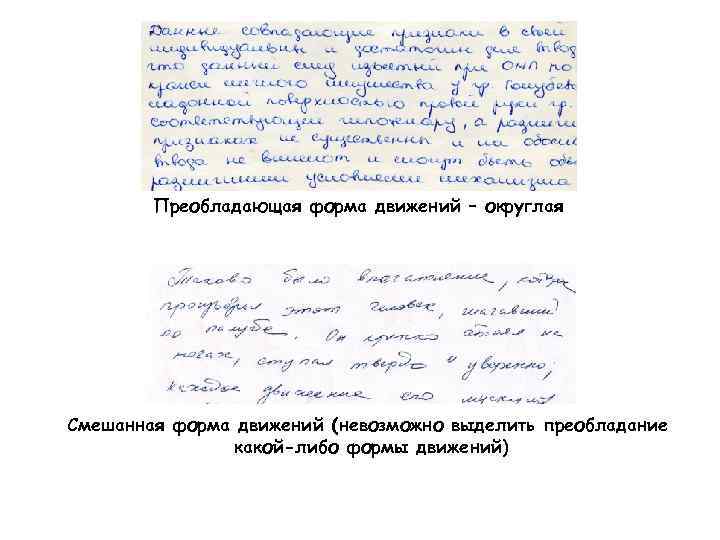 Данные совпадающие признаки в своей
индивидуальны и достаточны для вывод
что данный след изъятый при ОМП по
кражи личного имущества у гр. Голубев
ладонной поверхностью правой руки гр.
соответствующей гипонару, а различи
признаках не существенны и на обосн
вывода не влияют и могут быть объ
различными условиями механизма
Преобладающая форма движений – округлая
Таково было впечатление,
производил этот человек, шагавший
по палубе. Он крепко стоял на
ногах, ступал твердо и уверенно;
каждое движение его мускулов
Смешанная форма движений (невозможно выделить преобладание
какой-либо формы движений)